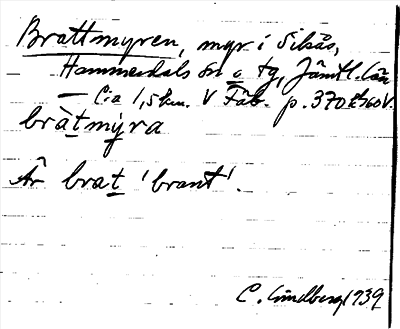 Brattmyren, myr i Sikås,
Hammerdals sn o tg, Jämtl. län
— C:a 1,5 km. V Fåb. p. 370
bràtmỳra
Är brat 'brant'.
C. Lindberg 1939